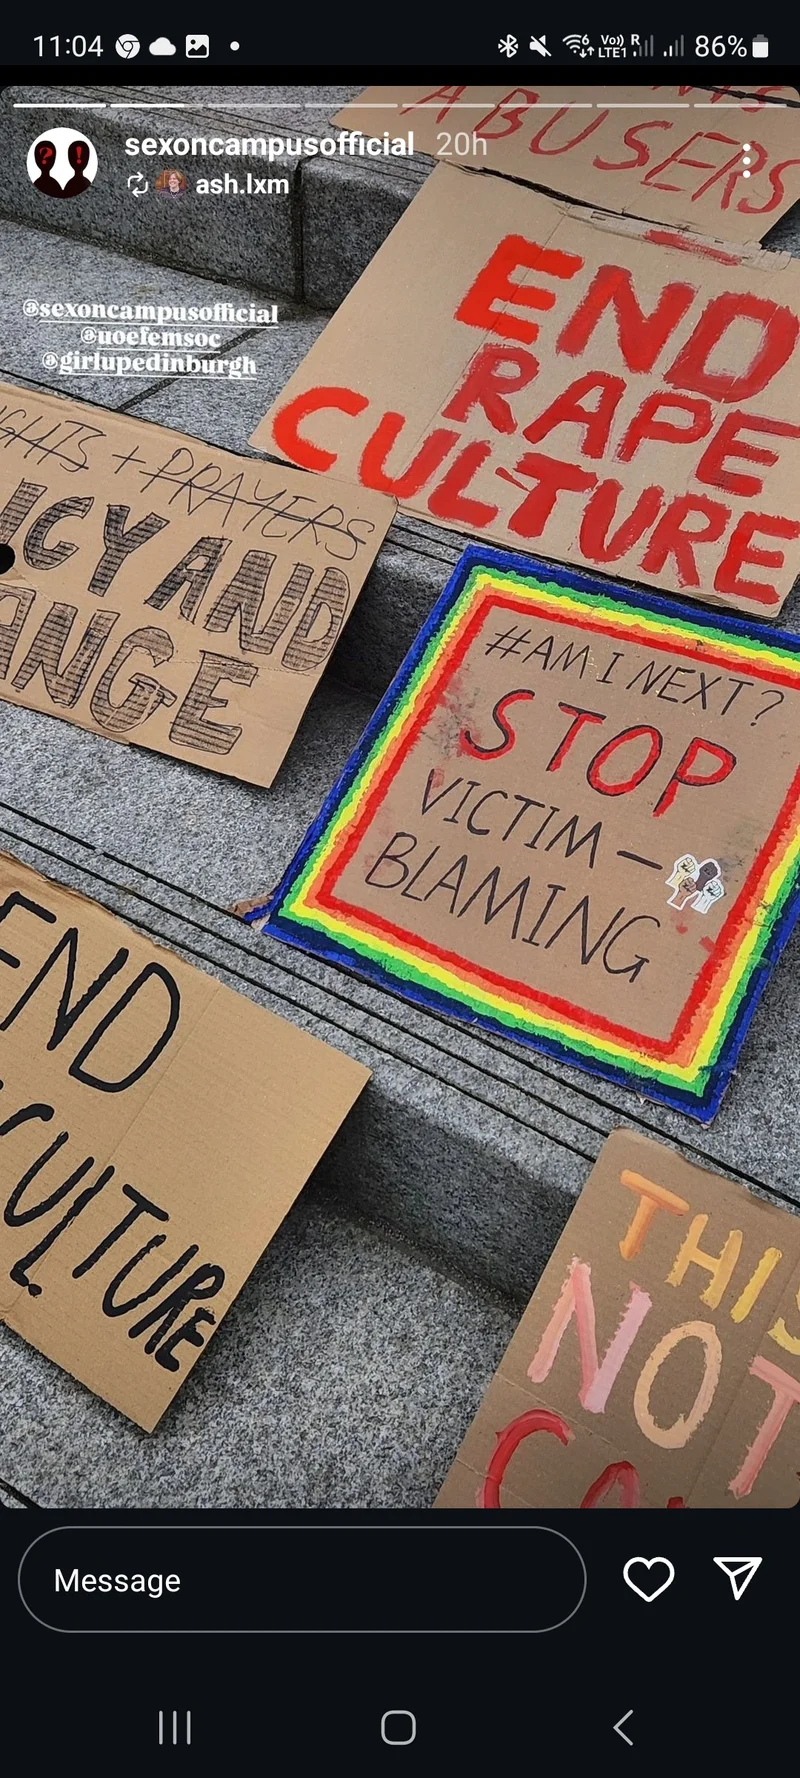 11:04
Vo))
LTE1
R
86%
sexoncampusofficial 20h
ash.lxm
ABUSERS
@sexoncampusofficial
@uoefemsoc
@girlupedinburgh
END
RAPE
CULTURE
GHTS + PRAYERS
ICY AND
ANGE
#AM I NEXT?
STOP
VICTIM-
BLAMING
END
CULTURE
THIS
NOT
Message